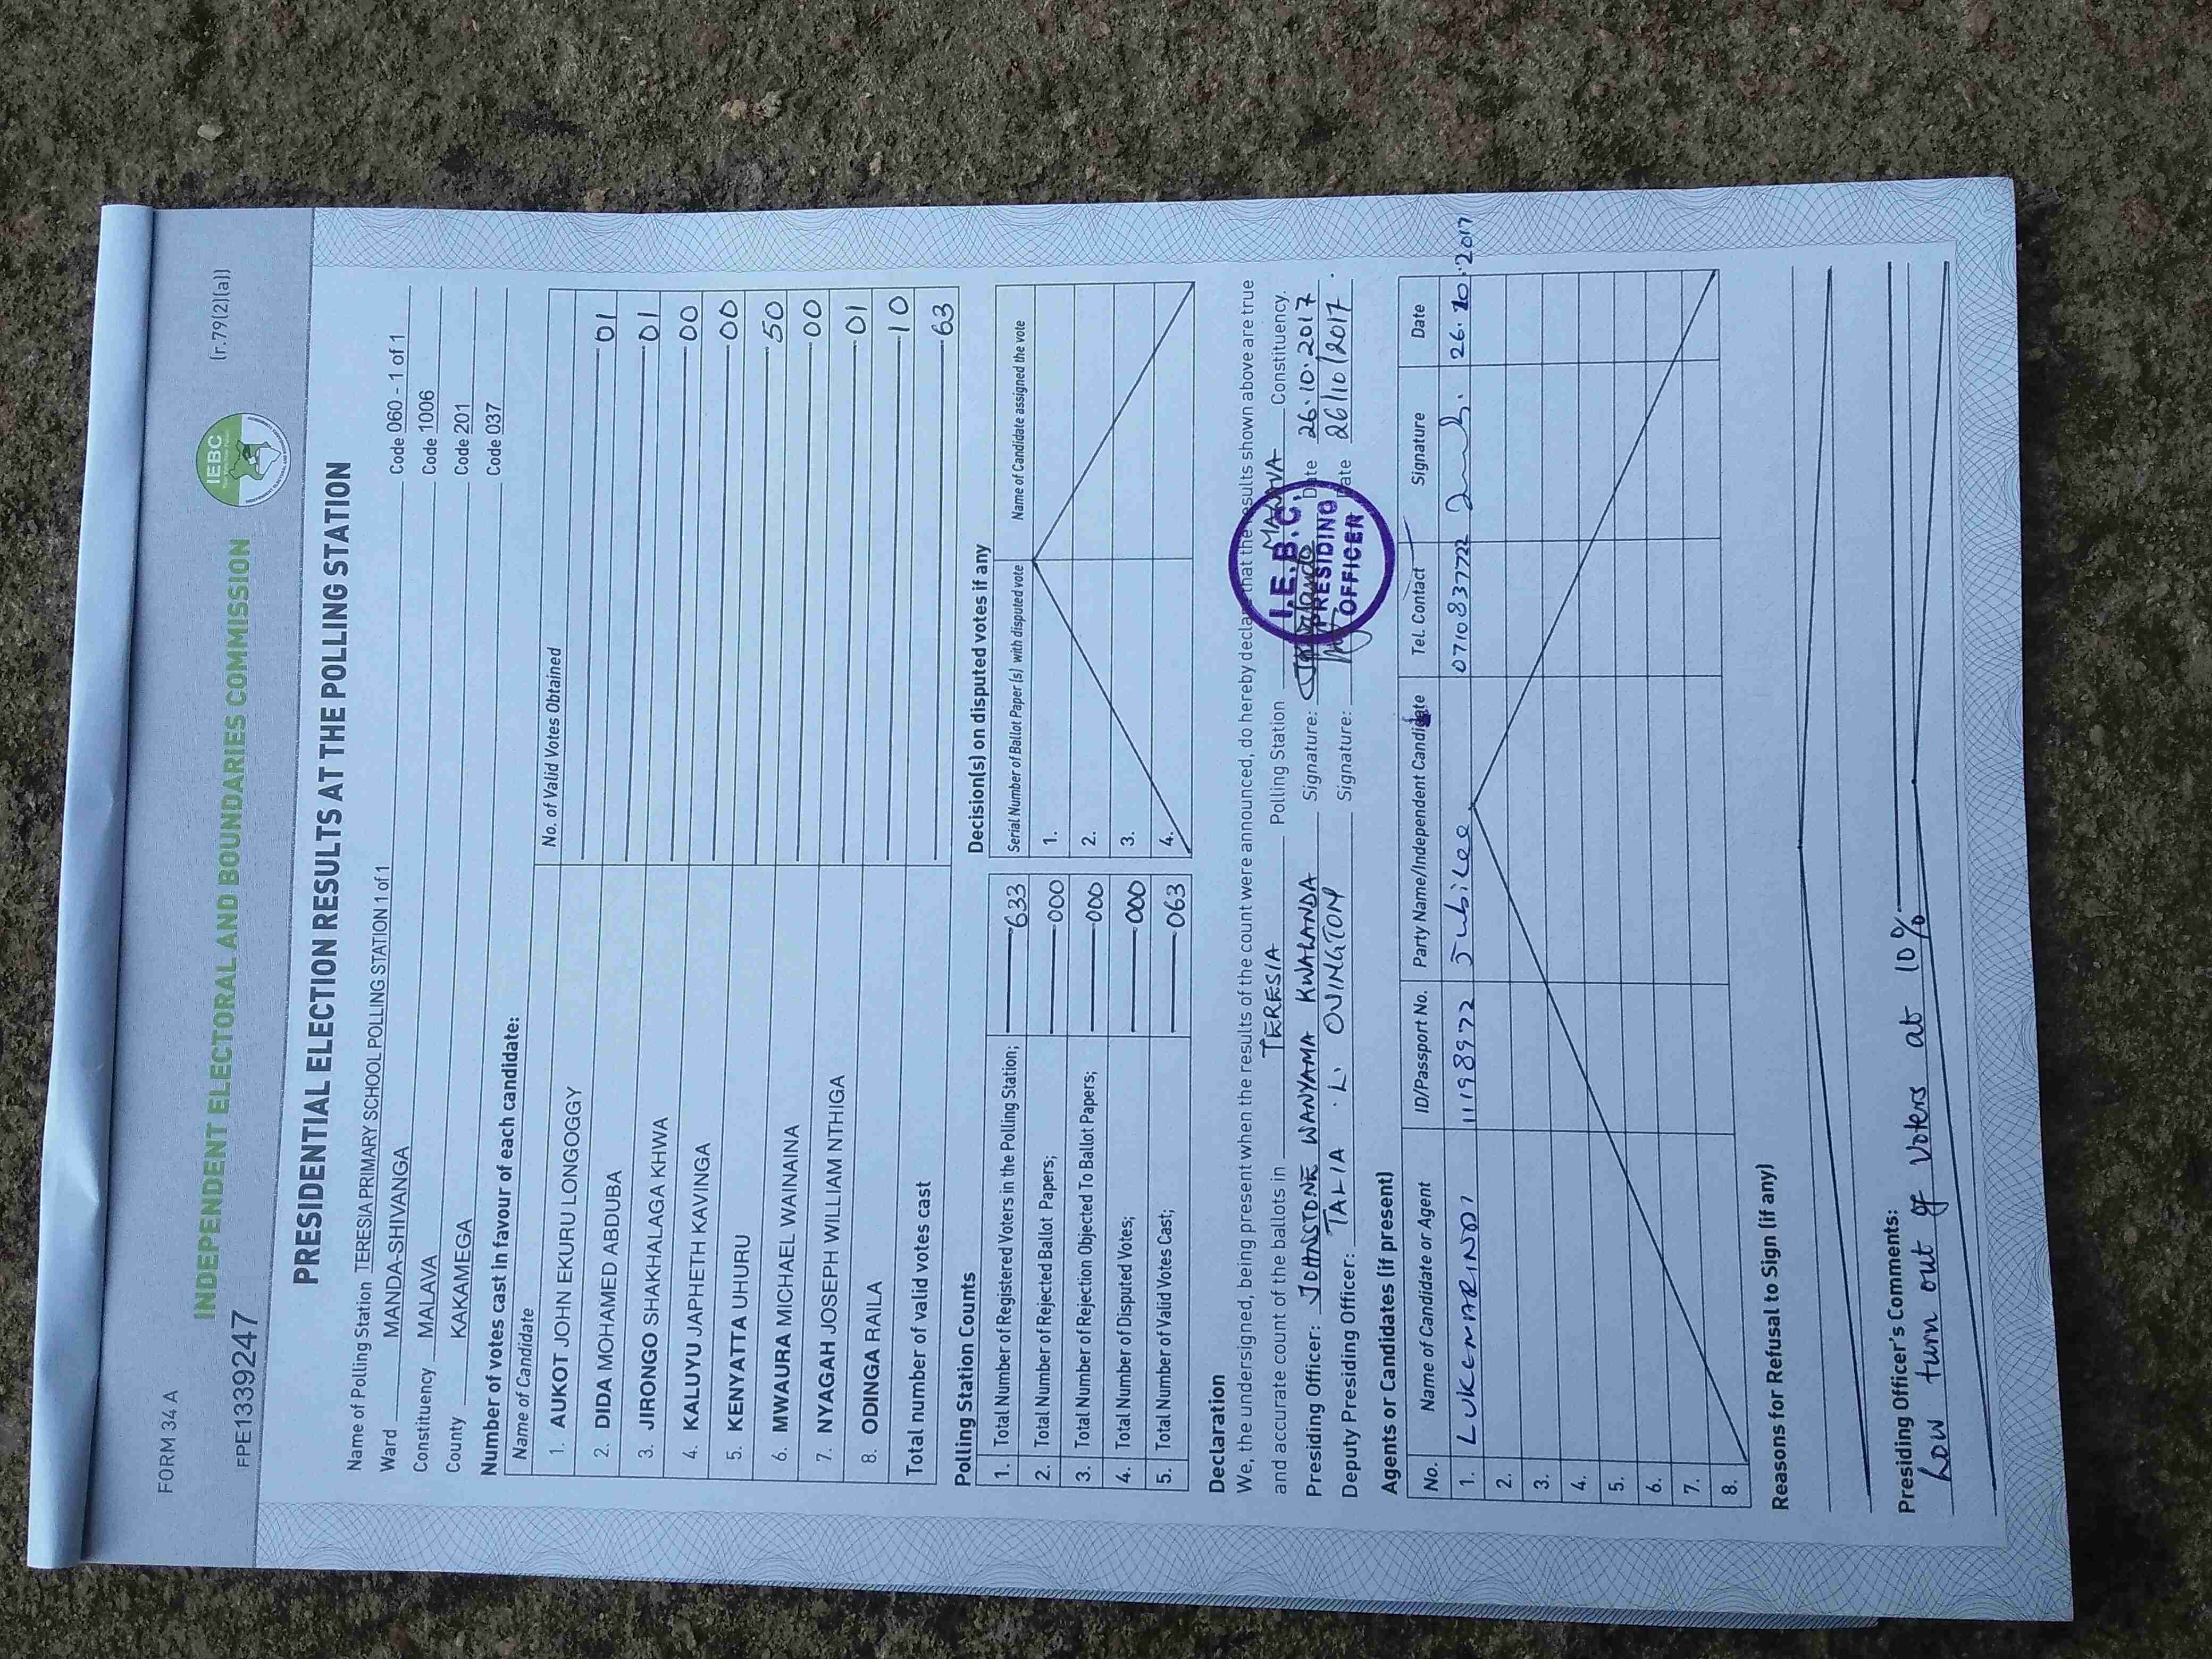 FORM 34 A
(r.79(2)(a))
FPE1339247
INDEPENDENT ELECTORAL AND BOUNDARIES COMMISSION
IEBC
PRESIDENTIAL ELECTION RESULTS AT THE POLLING STATION
Name of Polling Station TERESIA PRIMARY SCHOOL POLLING STATION 1 of 1 Code 060 - 1 of 1
Ward MANDA-SHIVANGA Code 1006
Constituency MALAVA Code 201
County KAKAMEGA Code 037
Number of votes cast in favour of each candidate:
Name of Candidate No. of Valid Votes Obtained
1. AUKOT JOHN EKURU LONGOGGY 01
2. DIDA MOHAMED ABDUBA 01
3. JIRONGO SHAKHALAGA KHWA 00
4. KALUYU JAPHETH KAVINGA 00
5. KENYATTA UHURU 50
6. MWAURA MICHAEL WAINAINA 00
7. NYAGAH JOSEPH WILLIAM NTHIGA 01
8. ODINGA RAILA 10
Total number of valid votes cast 63
Polling Station Counts
1. Total Number of Registered Voters in the Polling Station; 633
2. Total Number of Rejected Ballot Papers; 000
3. Total Number of Rejection Objected To Ballot Papers; 000
4. Total Number of Disputed Votes; 000
5. Total Number of Valid Votes Cast; 063
Decision(s) on disputed votes if any
Serial Number of Ballot Paper (s) with disputed vote Name of Candidate assigned the vote
1.
2.
3.
4.
Declaration
We, the undersigned, being present when the results of the count were announced, do hereby declare that the results shown above are true
and accurate count of the ballots in TERESIA Polling Station MALAVA Constituency.
Presiding Officer: JOHNSTONE WANYAMA KWALANDA Signature: Date 26.10.2017
Deputy Presiding Officer: TALIA . L. OVINGTON Signature: Date 26/10/2017.
I.E.B.C.
PRESIDING
OFFICER
Agents or Candidates (if present)
No. Name of Candidate or Agent ID/Passport No. Party Name/Independent Candidate Tel. Contact Signature Date
1. 11198972 Jubilee 0710837722 26.10.2017
2.
3.
4.
5.
6.
7.
8.
Reasons for Refusal to Sign (if any)
Presiding Officer's Comments:
Low turn out of voters at 10%